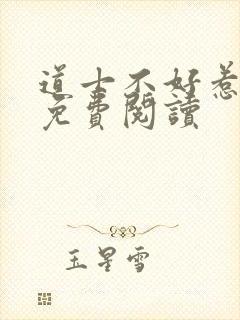 道士不好惹
免費閱讀
玉星雪